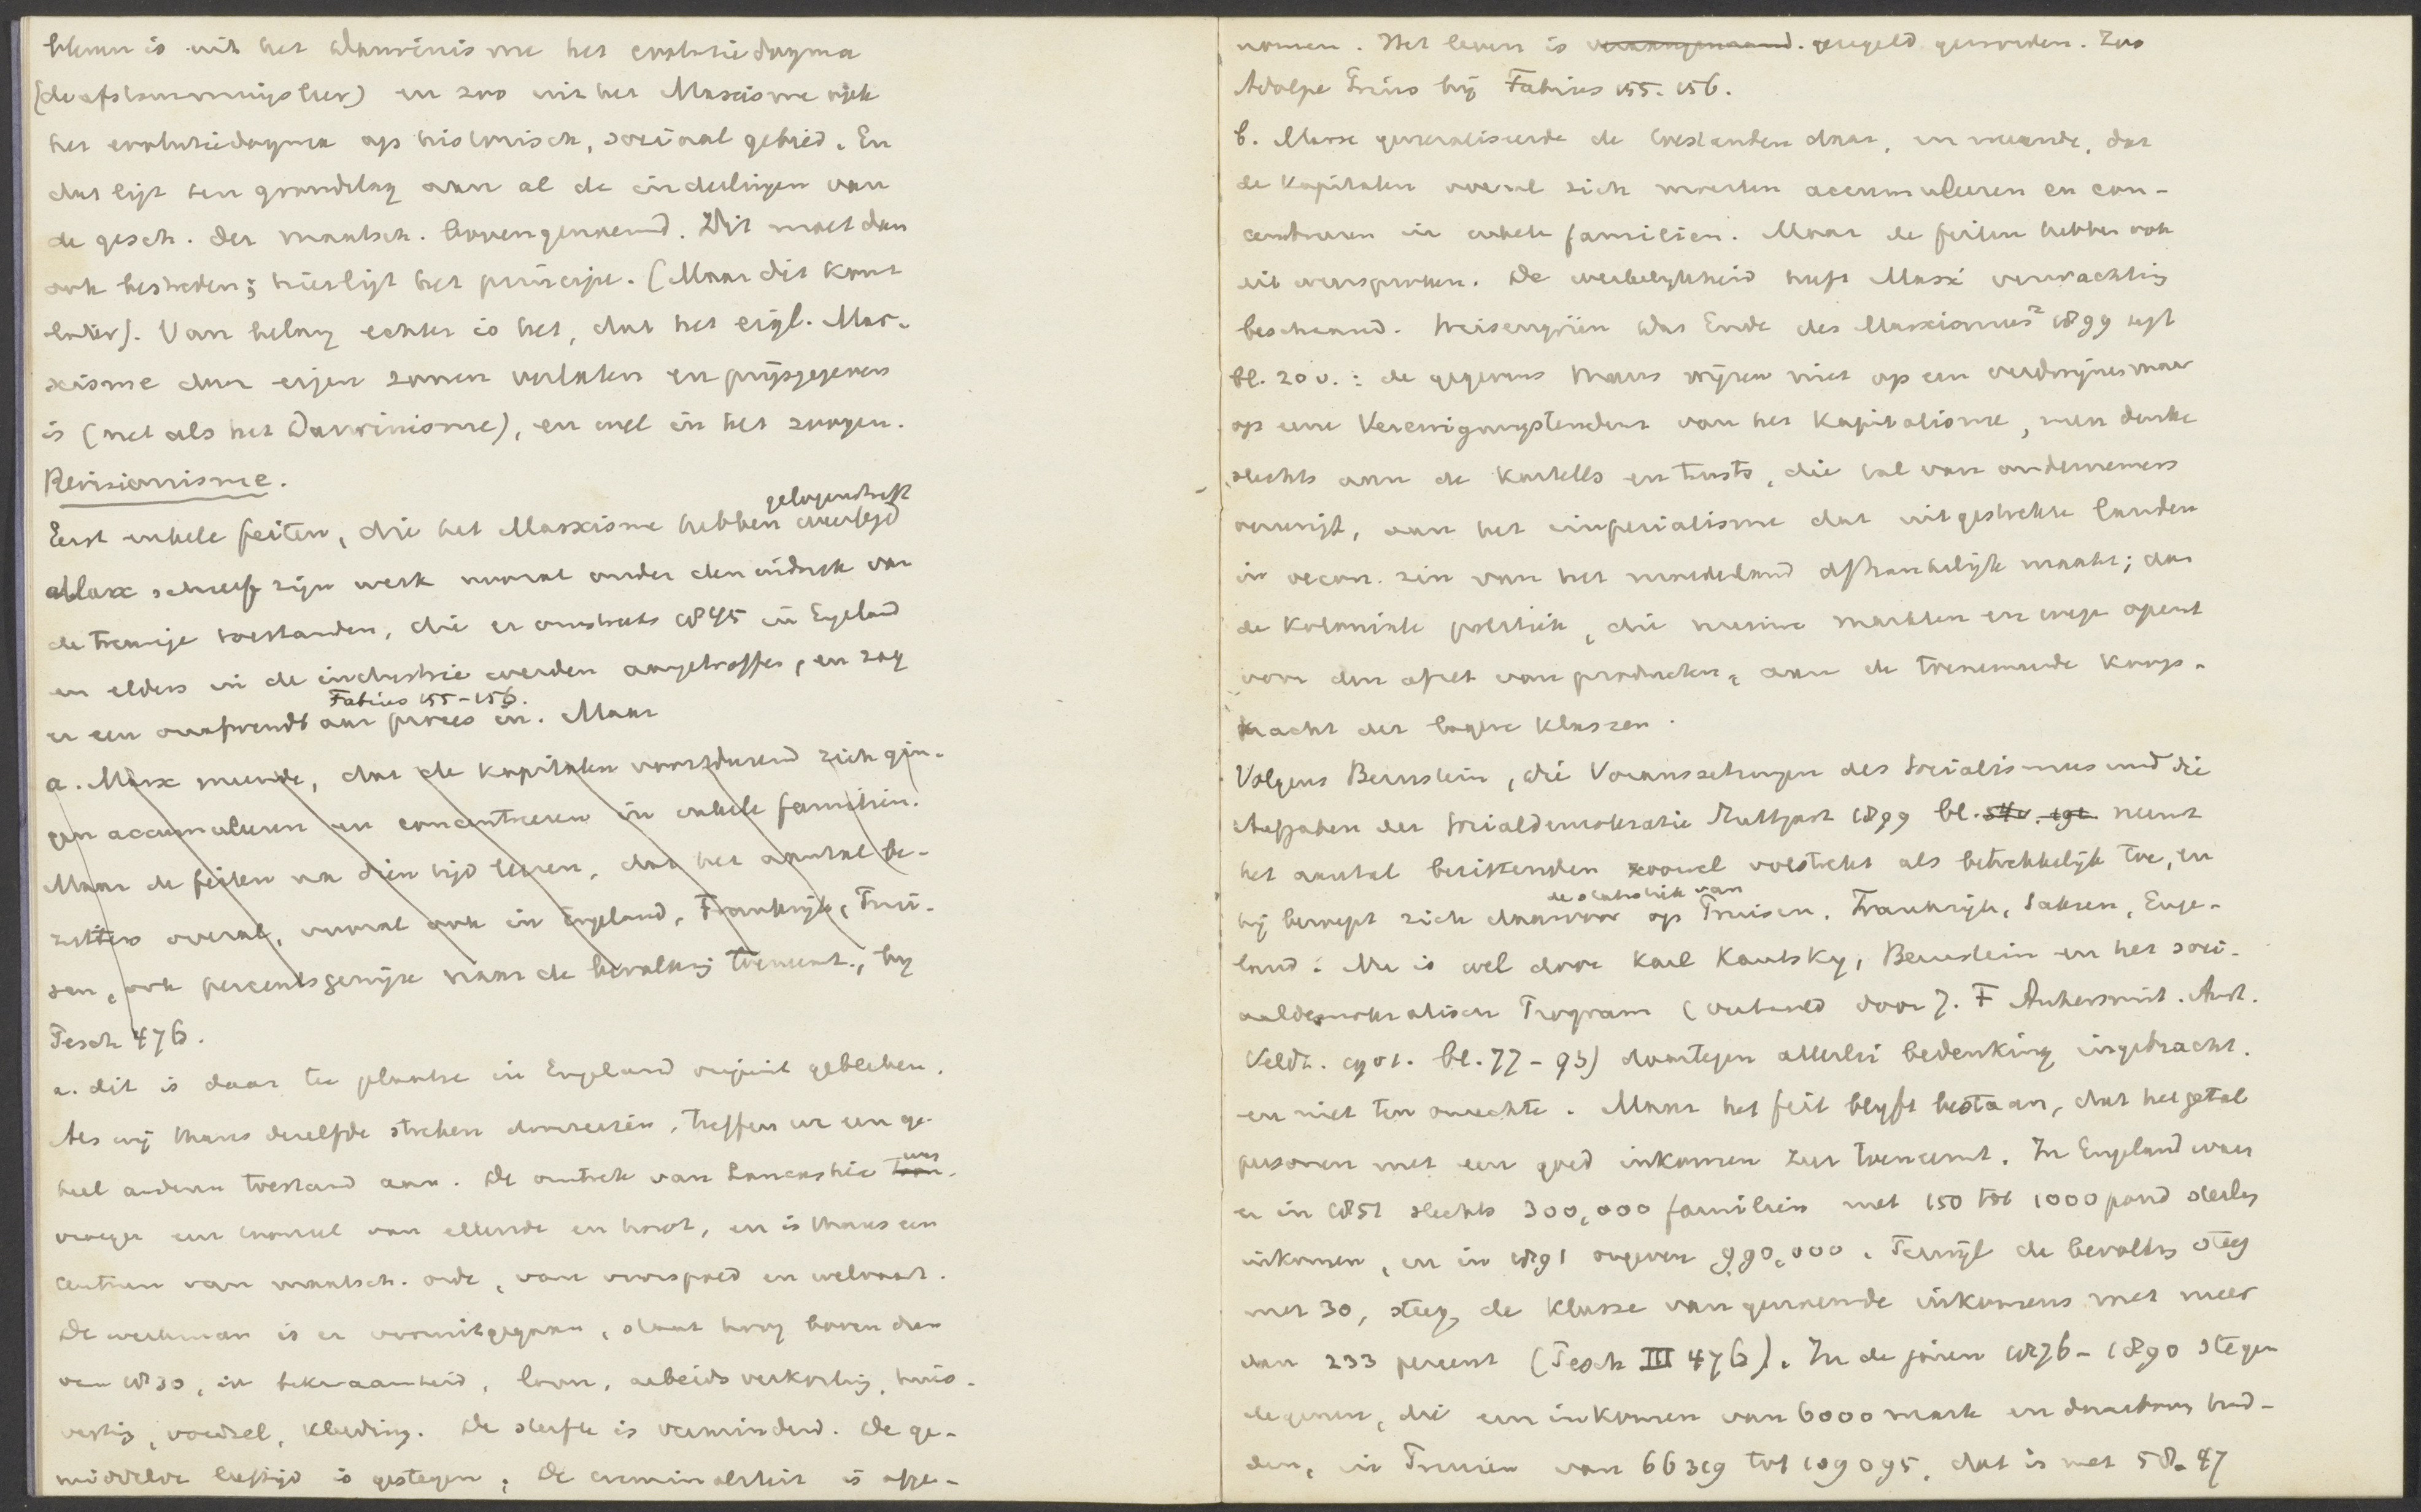 bleven is uit het Darwinisme het evolutiedogma
(de afstammingsleer) en zoo uit het Marxisme ook
het evolutiedogma op historisch, sociaal gebied. En
dat ligt ten grondslag aan al de indeelingen van
de gesch. der maatsch. bovengenoemd. Dit moet dan
ook bestreden; hier ligt het principe. (Maar dit komt
later). Van belang echter is het, dat het eigl. Mar-
xisme door eigen zonen verlaten en prijsgegeven
is (net als het Darwinisme), en wel in het zoogen.
Revisionisme.
Eerst enkele feiten, die het Marxisme hebben gelogenstraft weerlegd
Marx schreef zijn werk vooral onder den indruk van
de treurige toestanden, die er omstreeks 1845 in Engeland
en elders in de industrie werden aangetroffen, en zag
er een onafwendbaar proces in. Maar
Fabius 155-156.
a. Marx meende, dat de kapitalen voortdurend zich gin-
gen accumuleeren en concentreeren in enkele familien.
Maar de feiten na dien tijd leeren, dat het aantal be-
zitters overal, vooral ook in Engeland, Frankrijk, Prui-
sen, ook percentsgewijze naar de bevolking toeneemt, by
Pesch 476.
a. dit is daar ter plaatse in Engeland onjuist gebleken.
Als wij thans dezelfde streken doorreizen, treffen we een ge-
heel anderen toestand aan. De omtrek van Lancashire was
vroeger een tooneel van ellende en nood, en is thans een
centrum van maatsch. orde, van voorspoed en welvaart.
De werkman is er vooruitgegaan, staat hoog boven dien
van 1830, in bekwaamheid, loon, arbeidsverkorting, huis-
vesting, voedsel, kleeding. De sterfte is verminderd. De ge-
middelde leeftijd is gestegen; De criminaliteit is afge-
nomen. Het leven is geregeld geworden. Zoo
Adolpe Prins bij Fabius 155. 156.
b. Marx generaliseerde de toestanden daar, en meende, dat
de kapitalen overal zich moesten accumuleeren en con-
centreeren in enkele familien. Maar de feiten hebben ook
dit weersproken. De werkelijkheid heeft Marx' verwachting
beschaamd. Weisengrün Das Ende des Marxismus² 1899 zegt
bl. 20 v.: de gegevens thans wijzen niet op een verdwijnen maar
op eene Vereenigungstendenz van het Kapitalisme, men denke
slechts aan de Kartells en Trusts, die tal van ondernemers
vereenigt, aan het imperialisme dat uitgestrekte landen
in oecon. zin van het moederland afhankelijk maakt; aan
de koloniale politiek, die nieuwe markten en wegen opent
voor den afzet van producten, aan de toenemende koop-
kracht der lagere klassen.
Volgens Bernstein, die Voraussetzungen des Socialismus und die
Aufgaben der Socialdemokratie Stuttgart 1899 bl. 54v. 191. neemt
het aantal bezittenden zoowel volstrekt als betrekkelijk toe, en
hij beroept zich daarvoor op de statistiek van Pruisen, Frankrijk, Saksen, Enge-
land. Nu is wel door Karl Kautsky, Bernstein en het soci-
aaldemokratisch Program (vertaald door J. F Ankersmit. Amst.
Veldt. 1901. bl. 77-95) daartegen allerlei bedenking ingebracht.
en niet ten onrechte. Maar het feit blyft bestaan, dat het getal
personen met een goed inkomen zeer toeneemt. In Engeland waren
er in 1851 slechts 300,000 familien met 150 tot 1000 pond sterling
inkomen, en in 1891 ongeveer 990,000. Terwijl de bevolking steeg
met 30, steeg de klasse van genoemde inkomens met meer
dan 233 percent (Pesch III 476). In de jaren 1876-1890 stegen
degenen, die een inkomen van 6000 mark en daarboven had-
den, in Pruisen van 66319 tot 109095, dat is met 58.47